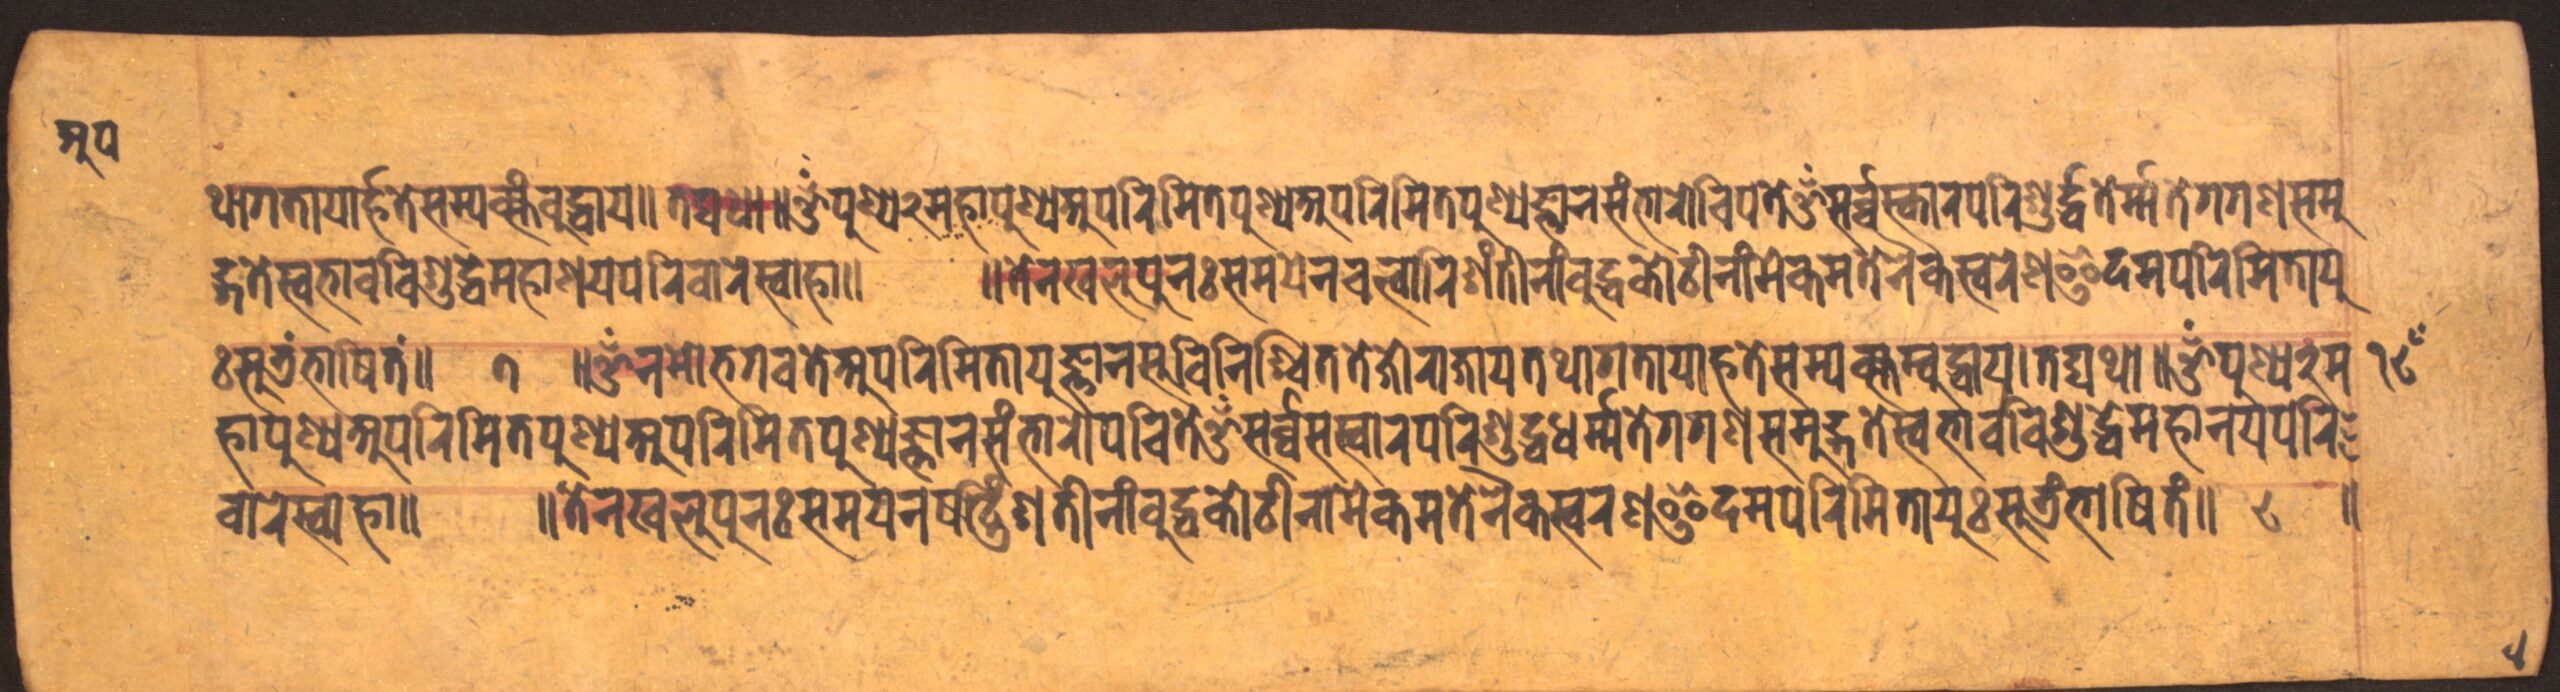 अप
थागतायार्हतेसम्यक्संबुद्धाय॥ तद्यथा॥ॐपुण्य२महापुण्यअपरिमितपुण्यअपरिमितपुण्यज्ञानसंभारोचिपतेॐसर्व्वस्कारपरिशुर्द्धतेर्म्मतेगगणसमु
द्गतेस्वभावविशुद्धेमहाणयपरिवारेस्वाहा॥ ॥तेनखलुपुनःसमयेनचत्वारिशंतीनांबुद्धकोटीनांमेकमतेनैकस्वरेणइदमपरिमितायु
ःसूत्रंभाषितं॥ ७ ॥ॐनमोभगवतेअपरिमितायुज्ञानसुविनिश्चिततेजोराजायतथागतायाहतेसम्यक्सम्बुद्धाय।तद्यथा॥ॐपुण्य२म
हापुण्यअपरिमितपुण्यअपरिमितपुण्यज्ञानसंभारोपचितेॐसर्व्वसस्कारपरिशुद्धधर्म्मतेगगणसमुद्गतेस्वभावविशुद्धेमहानयपरि
वारेस्वाहा॥ ॥तेनखलुपुनःसमयनषट्त्रिंशतीनांबुद्धकोटीनामेकमतेनैकस्वरणइदमपरिमितायुःसूत्रंभाषितं॥ ८ ॥